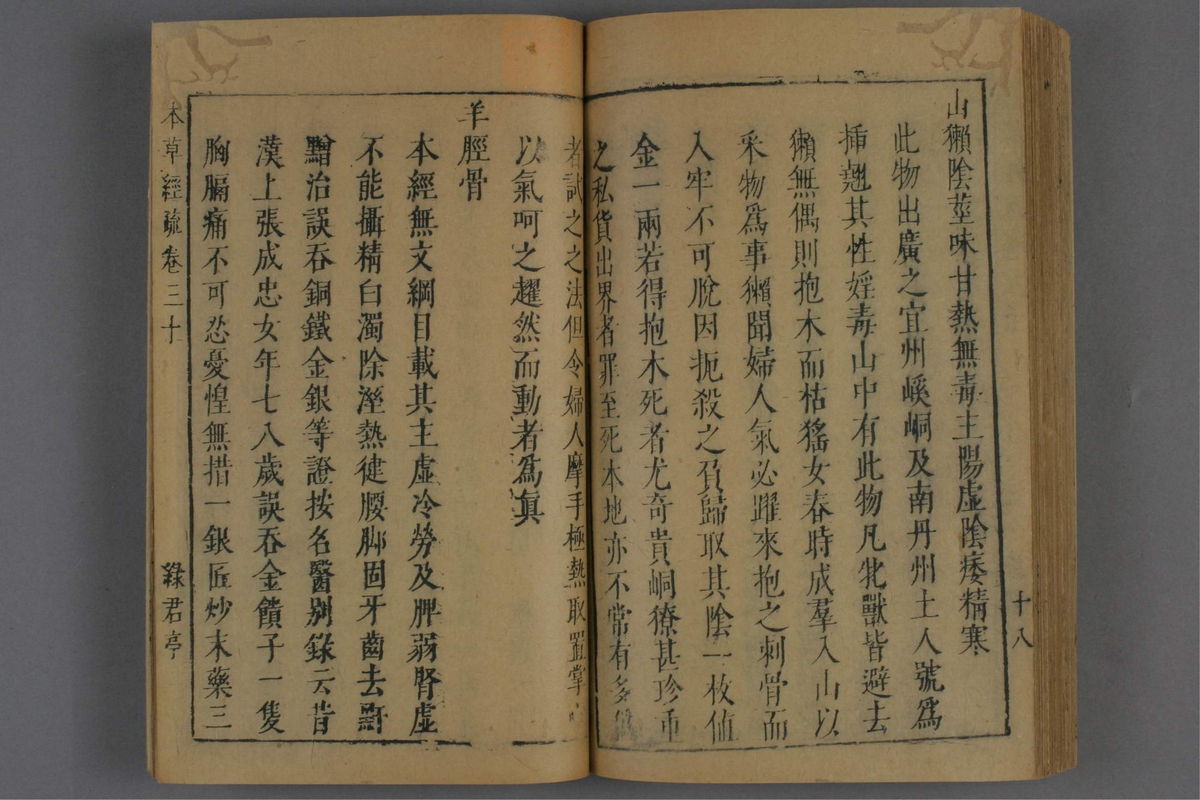 十八
山獺陰莖味甘熱無毒主陽虛陰痿精寒
此物出廣之宜州嵠峒及南丹州土人號爲
插翹其性婬毒山中有此物凡牝獸皆避去
獺無偶則抱木而枯猺女春時成羣入山以
采物爲事獺聞婦人氣必躍來抱之刺骨而
入牢不可脫因扼殺之負歸取其陰一枚值
金一兩若得抱木死者尤奇貴峒獠甚珍重
之私貨出界者罪至死本地亦不常有多
者試之之法但令婦人摩手極熱取置掌
以氣呵之趯然而動者爲眞
羊脛骨
本經無文綱目載其主虛冷勞及脾弱腎虛
不能攝精白濁除溼熱健腰脚固牙齒去䵟
䵴治誤吞銅鐵金銀等證按名醫别錄云昔
漢上張成忠女年七八歲誤吞金饋子一隻
胸膈痛不可忍憂惶無措一銀匠炒末藥三
本草經疏卷三十
綠君亭